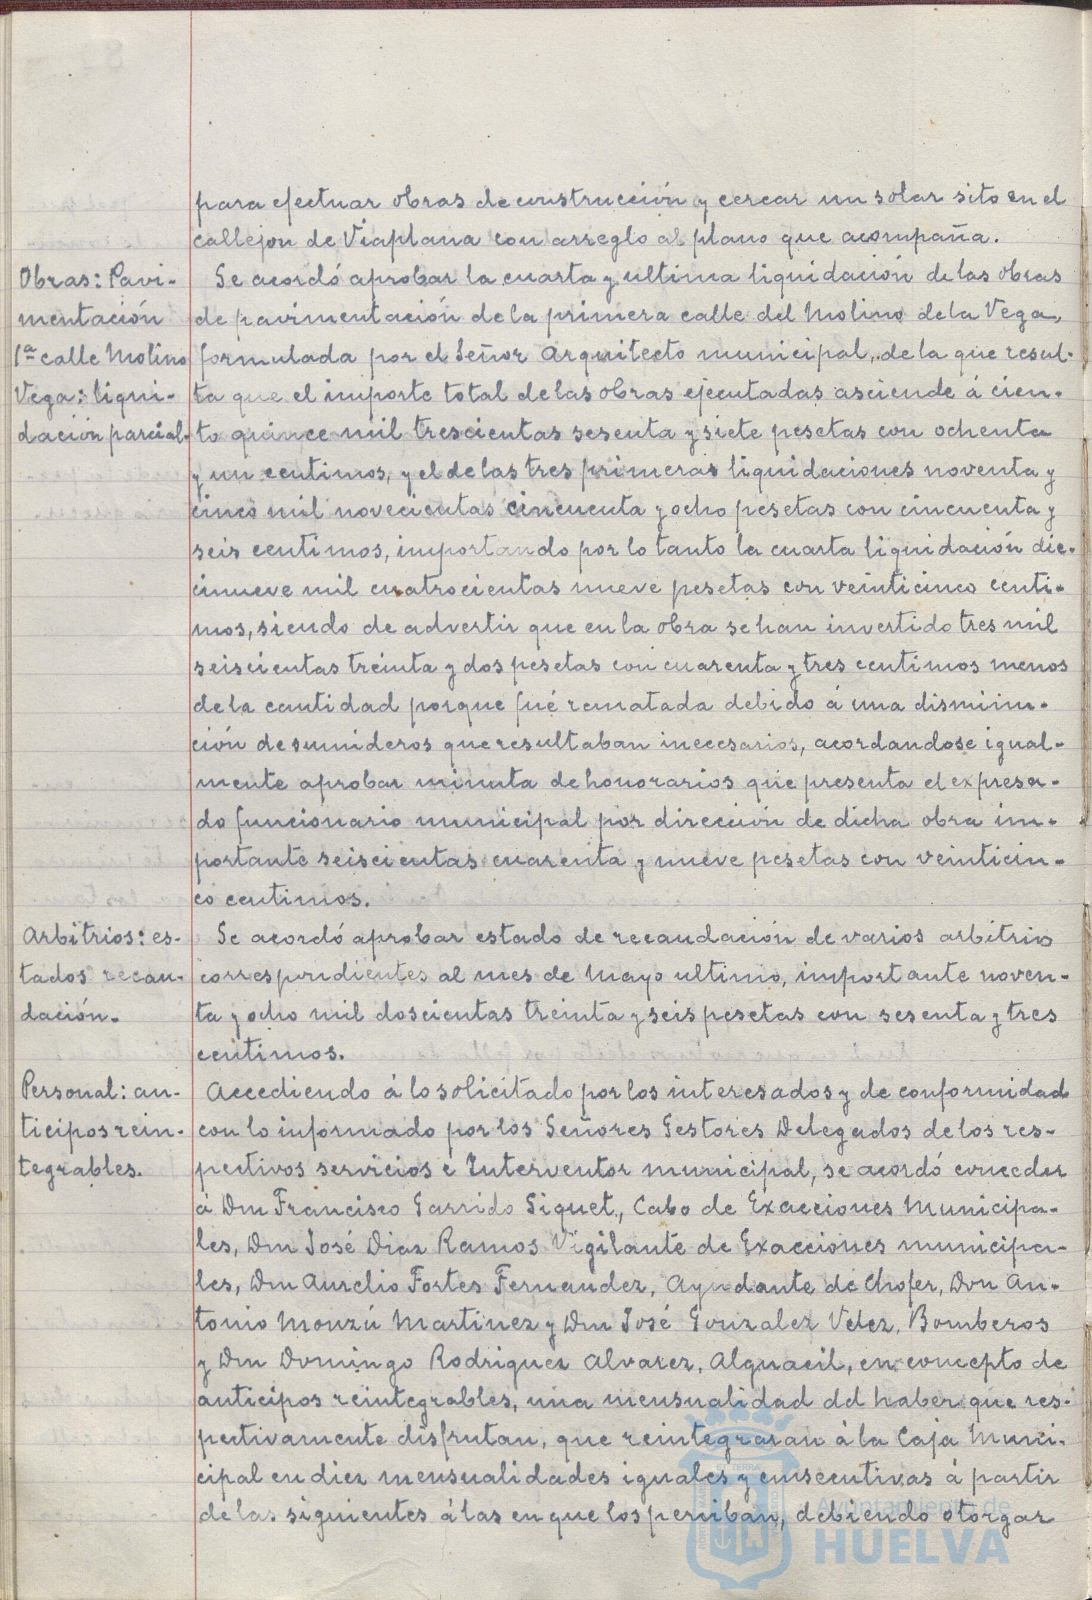 para efectuar obras de construcción y cercar un solar sito en el
callejon de Viaplana con arreglo al plano que acompaña.
Obras: Pavi-
mentación
1ª calle Molino
Vega: liqui-
dación parcial.
Se acordó aprobar la cuarta y ultima liquidación de las obras
de pavimentación de la primera calle del Molino de la Vega,
formulada por el Señor Arquitecto municipal, de la que resul-
ta que el importe total de las obras ejecutadas asciende á cien-
to quince mil trescientas sesenta y siete pesetas con ochenta
y un centimos, y el de las tres primeras liquidaciones noventa y
cinco mil novecientas cincuenta y ocho pesetas con cincuenta y
seis centimos, importando por lo tanto la cuarta liquidación die-
cinueve mil cuatrocientas nueve pesetas con veinticinco centi-
mos, siendo de advertir que en la obra se han invertido tres mil
seiscientas treinta y dos pesetas con cuarenta y tres centimos menos
de la cantidad porque fué rematada debido á una disminu-
ción de sumideros que resultaban inecesarios, acordandose igual-
mente aprobar minuta de honorarios que presenta el expresa-
do funcionario municipal por dirección de dicha obra im-
portante seiscientas cuarenta y nueve pesetas con veinticin-
co centimos.
Arbitrios: es-
tados recau-
dación.
Se acordó aprobar estado de recaudación de varios arbitrios
correspondientes al mes de Mayo ultimo, importante noven-
ta y ocho mil doscientas treinta y seis pesetas con sesenta y tres
centimos.
Personal: an-
ticipos rein-
tegrables.
Accediendo á lo solicitado por los interesados y de conformidad
con lo informado por los Señores Gestores Delegados de los res-
pectivos servicios e Interventor municipal, se acordó conceder
á Don Francisco Garrido Siguet, Cabo de Exacciones Municipa-
les, Don José Diaz Ramos Vigilante de Exacciones municipa-
les, Don Aurelio Fortes Fernandez, Ayudante de Chofer, Don An-
tonio Monzú Martinez y Don José Gonzalez Velez, Bomberos
y Don Domingo Rodriguez Alvarez, Alguacil, en concepto de
anticipos reintegrables, una mensualidad del haber que res-
pectivamente disfrutan, que reintegraran á la Caja Muni-
cipal en diez mensualidades iguales y consecutivas á partir
de las siguientes á las en que los perciban, debiendo otorgar
Ayuntamiento de
HUELVA